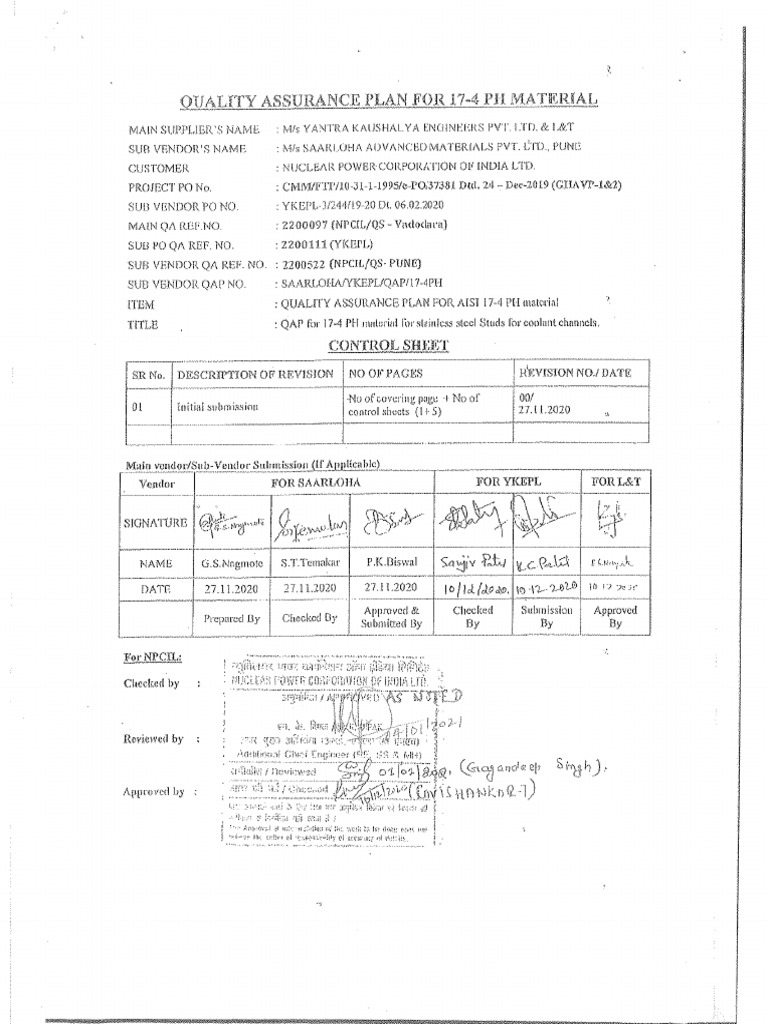 QUALITY ASSURANCE PLAN FOR 17-4 PH MATERIAL
MAIN SUPPLIER'S NAME : M/s YANTRA KAUSHALYA ENGINEERS PVT. LTD. & L&T
SUB VENDOR'S NAME : M/s SAARLOHA ADVANCED MATERIALS PVT. LTD., PUNE
CUSTOMER : NUCLEAR POWER CORPORATION OF INDIA LTD.
PROJECT PO No. : CMM/FTP/10-31-1-1995/e-PO/37381 Dtd. 24 – Dec-2019 (GHAVP-1&2)
SUB VENDOR PO NO. : YKEPL-J/244/19-20 Dt. 06.02.2020
MAIN QA REF.NO. : 2200097 (NPCIL/QS - Vadodara)
SUB PO QA REF. NO. : 2200111 (YKEPL)
SUB VENDOR QA REF. NO. : 2200522 (NPCIL/QS- PUNE)
SUB VENDOR QAP NO. : SAARLOHA/YKEPL/QAP/17-4PH
ITEM : QUALITY ASSURANCE PLAN FOR AISI 17-4 PH material
TITLE : QAP for 17-4 PH material for stainless steel Studs for coolant channels.
CONTROL SHEET
SR No. DESCRIPTION OF REVISION NO OF PAGES REVISION NO./ DATE
01 Initial submission No of covering page + No of control sheets (1+5) 00/ 27.11.2020
Main vendor/Sub-Vendor Submission (If Applicable)
Vendor FOR SAARLOHA FOR YKEPL FOR L&T
SIGNATURE
NAME G.S.Nagmote S.T.Temakar P.K.Biswal Sanjiv Patil K.C Patil
DATE 27.11.2020 27.11.2020 27.11.2020 10/12/2020. 10.12.2020 10.12.2020
Prepared By Checked By Approved & Submitted By Checked By Submission By Approved By
For NPCIL:
NUCLEAR POWER CORPORATION OF INDIA LTD.
Checked by :
/ APPROVED AS NOTED
/01/2021
Reviewed by :
Additional Chief Engineer
/ Reviewed 01/01/2021. (Gagandeep Singh).
Approved by :
/ Checked (RAVISHANKAR.T)